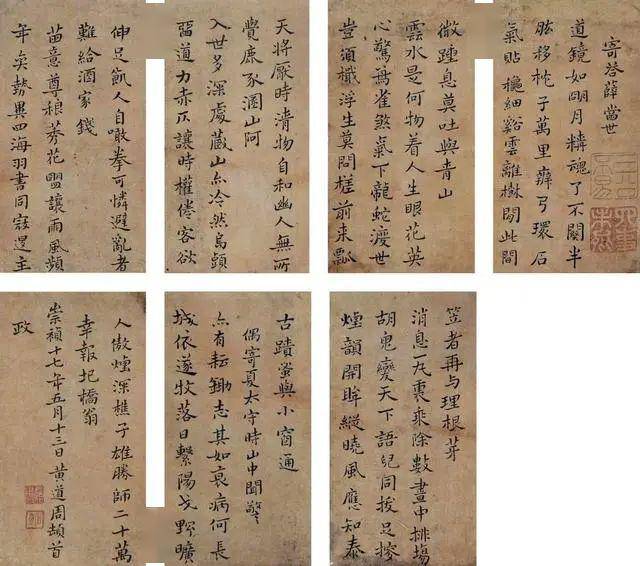 寄答薛當世
道鏡如明月精魂了不關半
肱移枕子萬里辭弓環石
氣貼細谿雲離樹閒此間
微踵息莫吐與青山
雲水是何物着人生眼花英
心驚燕雀煞氣下龍蛇濩世
豈須檝浮生莫問槎前来瓢
天將厭時清物自和幽人無所
覺鹿豕溷山阿
入世多深處藏山亦冷然烏頭
道力赤仄讓時權倦客欲
伸足飢人自噉拳可憐避亂者
難給酒家錢
苗意尊稂莠花盟讓雨風頻
年矣勢異四海羽書同寇逞主
笠者再与理根芽
消息一九裏乘除數晝中排場
胡鬼變天下語紀同足
煙韻開眸縱曉風應知泰
古蹟與小窗通
偶寄夏太守時山中聞警
亦有耘鋤志其如衰病何長
城依遂牧落日繫陽戈野曠
人傲煙深樵子雄勝師二十萬
幸報圯橋翁
崇禎十七年五月十三日黃道周頓首
政